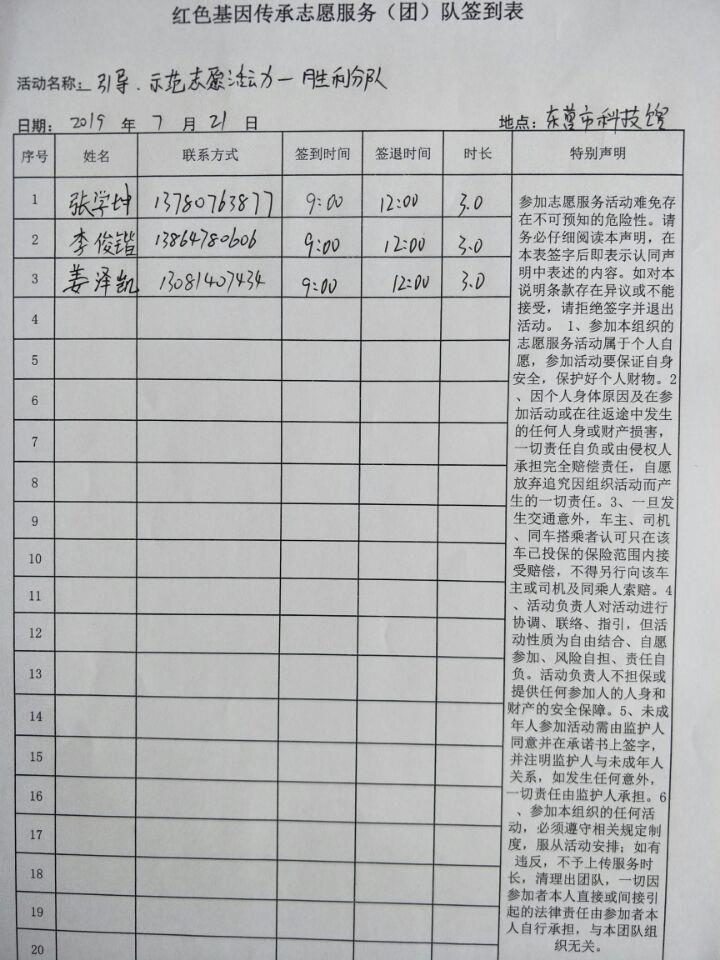 红色基因传承志愿服务（团）队签到表
活动名称：引导、示范志愿活动—胜利分队
日期： 2019 年 7 月 21 日 地点：东营市科技馆
序号 姓名 联系方式 签到时间 签退时间 时长 特别声明
1 张学坤 13780763877 9:00 12:00 3.0
2 李俊锴 13864780606 9:00 12:00 3.0
3 姜泽凯 13081407434 9:00 12:00 3.0
4
5
6
7
8
9
10
11
12
13
14
15
16
17
18
19
20
参加志愿服务活动难免存
在不可预知的危险性。请
务必仔细阅读本声明，在
本表签字后即表示认同声
明中表述的内容。如对本
说明条款存在异议或不能
接受，请拒绝签字并退出
活动。 1、参加本组织的
志愿服务活动属于个人自
愿，参加活动要保证自身
安全，保护好个人财物。2
、因个人身体原因及在参
加活动或在往返途中发生
的任何人身或财产损害，
一切责任自负或由侵权人
承担完全赔偿责任，自愿
放弃追究因组织活动而产
生的一切责任。3、一旦发
生交通意外，车主、司机
、同车搭乘者认可只在该
车已投保的保险范围内接
受赔偿，不得另行向该车
主或司机及同乘人索赔。4
、活动负责人对活动进行
协调、联络、指引，但活
动性质为自由结合、自愿
参加、风险自担、责任自
负。活动负责人不担保或
提供任何参加人的人身和
财产的安全保障。5、未成
年人参加活动需由监护人
同意并在承诺书上签字，
并注明监护人与未成年人
关系，如发生任何意外，
一切责任由监护人承担。6
、参加本组织的任何活
动，必须遵守相关规定制
度，服从活动安排；如有
违反，不予上传服务时
长，清理出团队，一切因
参加者本人直接或间接引
起的法律责任由参加者本
人自行承担，与本团队组
织无关。